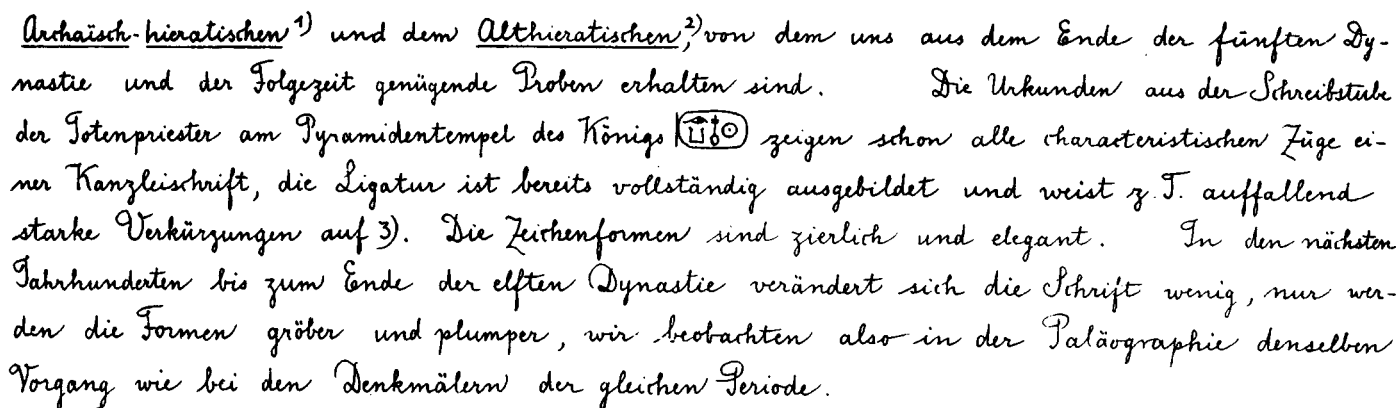 Archaisch-hieratischen 1) und dem Althieratischen, 2) von dem uns aus dem Ende der fünften Dy-
nastie und der Folgezeit genügende Proben erhalten sind. Die Urkunden aus der Schreibstube
der Totenpriester am Pyramidentempel des Königs zeigen schon alle characteristischen Züge ei-
ner Kanzleischrift, die Ligatur ist bereits vollständig ausgebildet und weist z. T. auffallend
starke Verkürzungen auf 3). Die Zeichenformen sind zierlich und elegant. In den nächsten
Jahrhunderten bis zum Ende der elften Dynastie verändert sich die Schrift wenig, nur wer-
den die Formen gröber und plumper, wir beobachten also in der Paläographie denselben
Vorgang wie bei den Denkmälern der gleichen Periode.